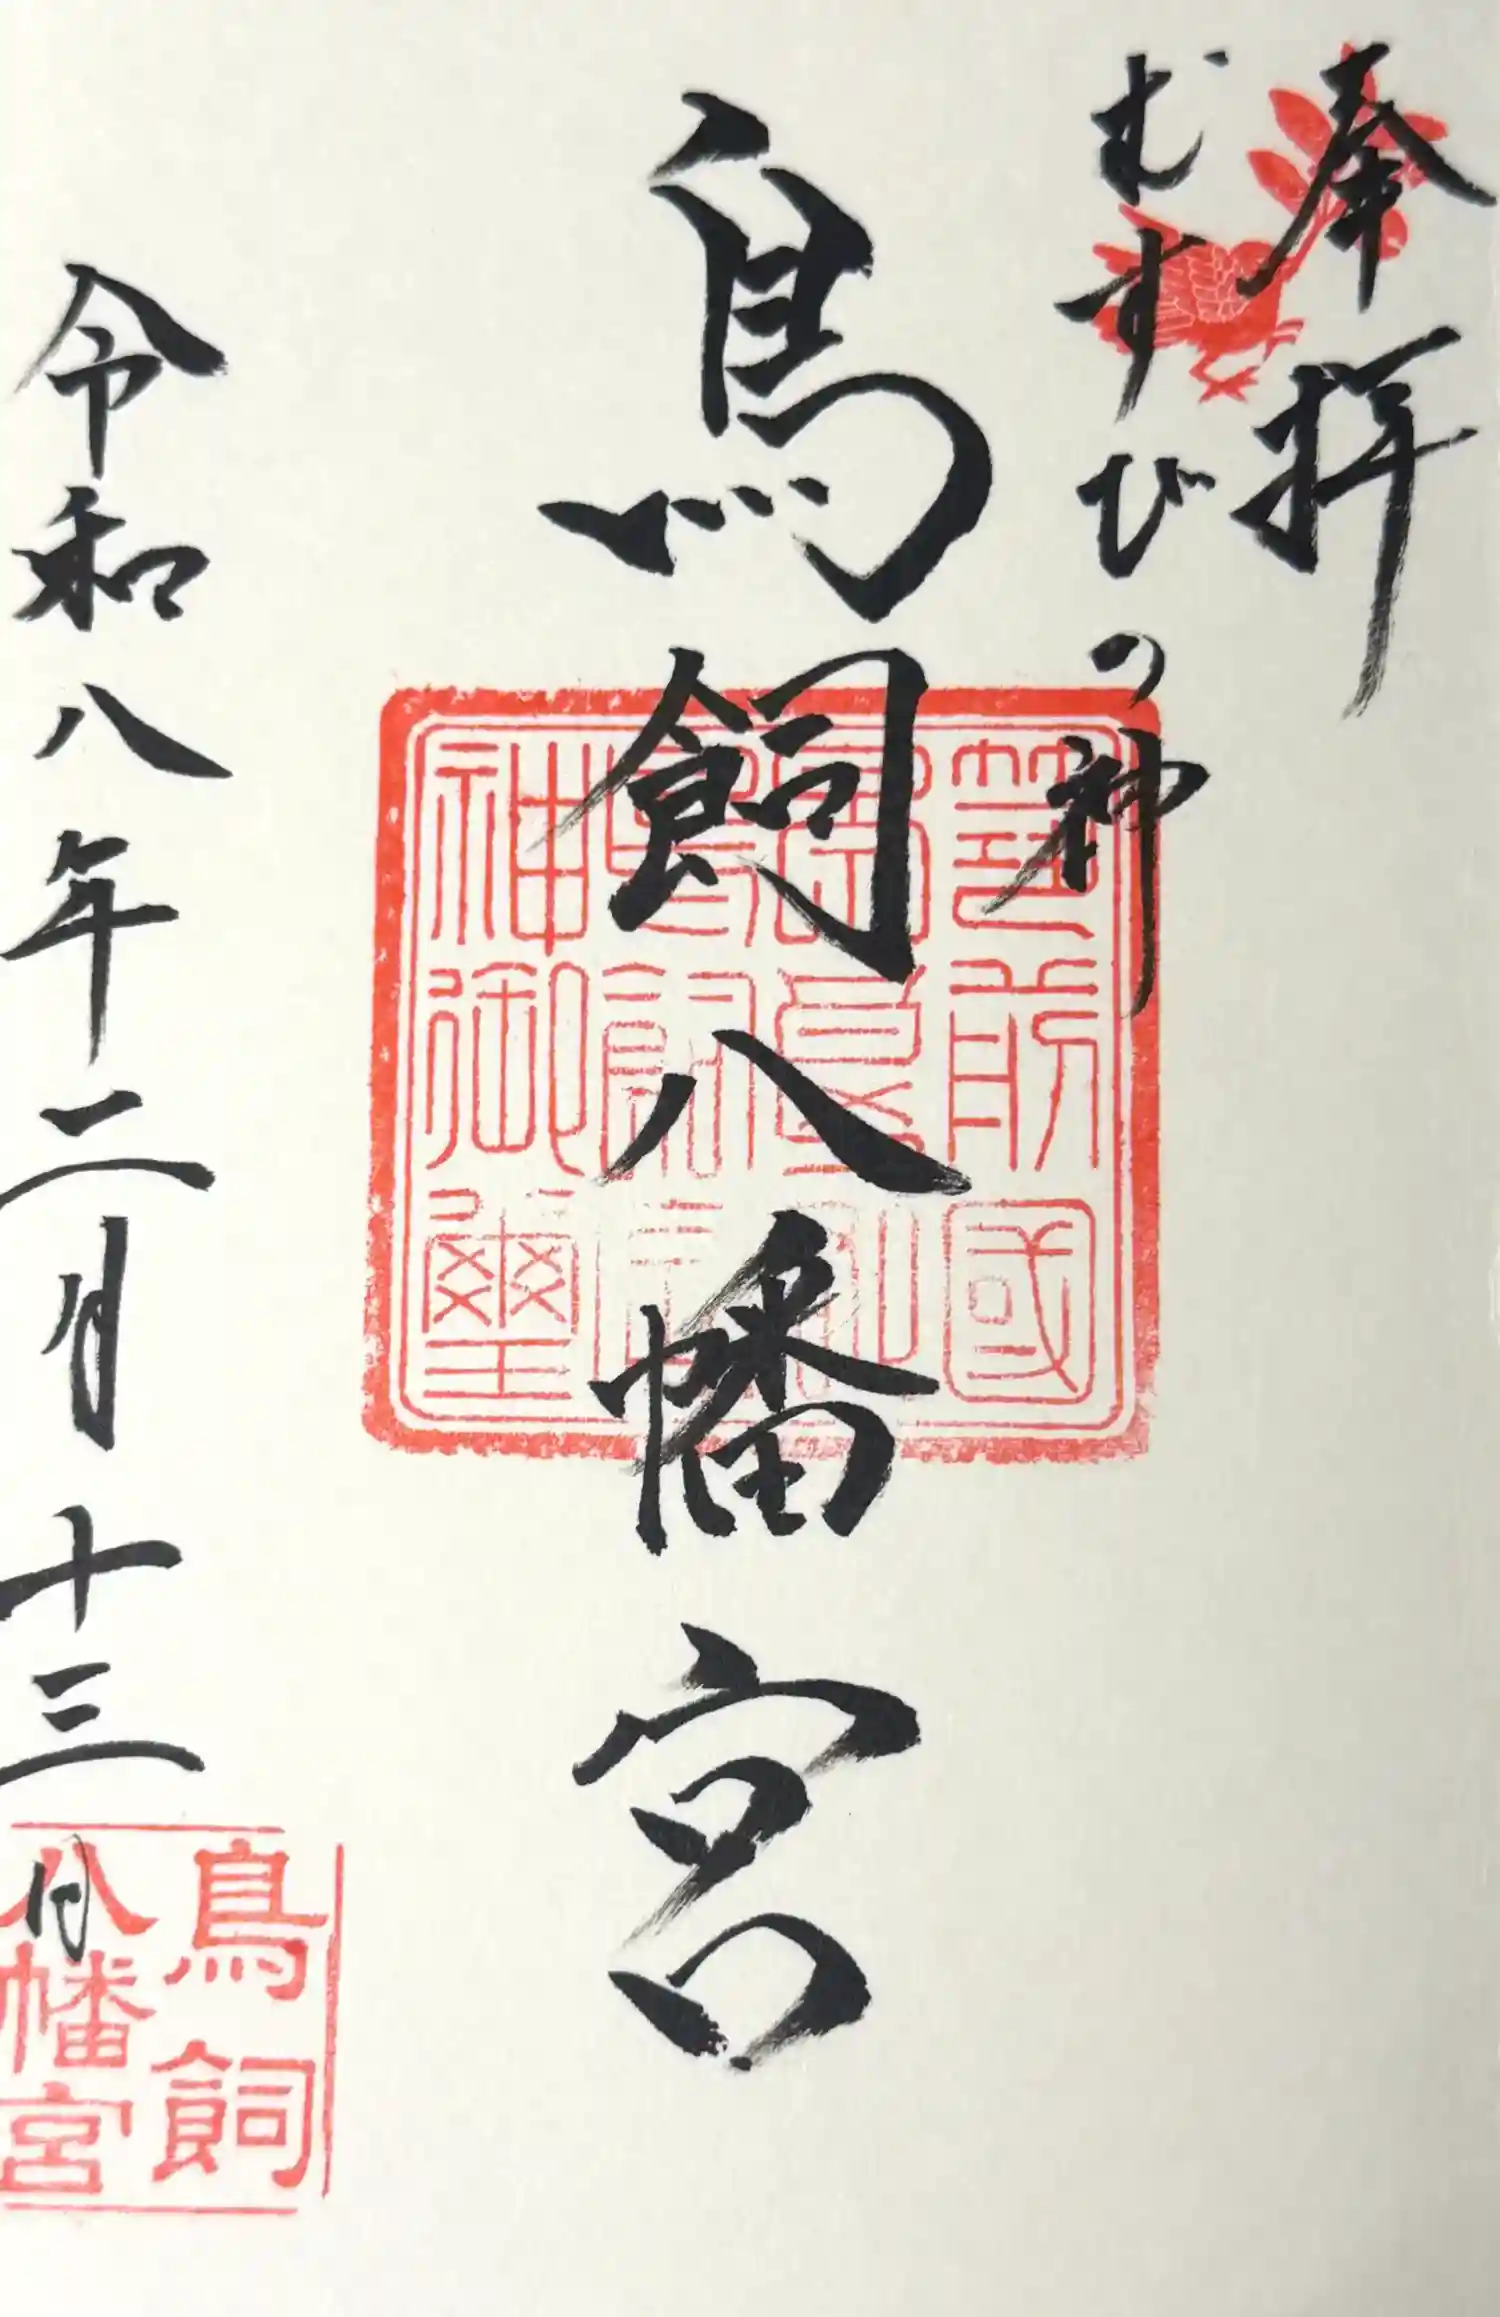 奉拝
むすびの神
鳥飼八幡宮
筑前國
鳥飼
神御璽
令和八年二月十三日
鳥飼
八幡宮